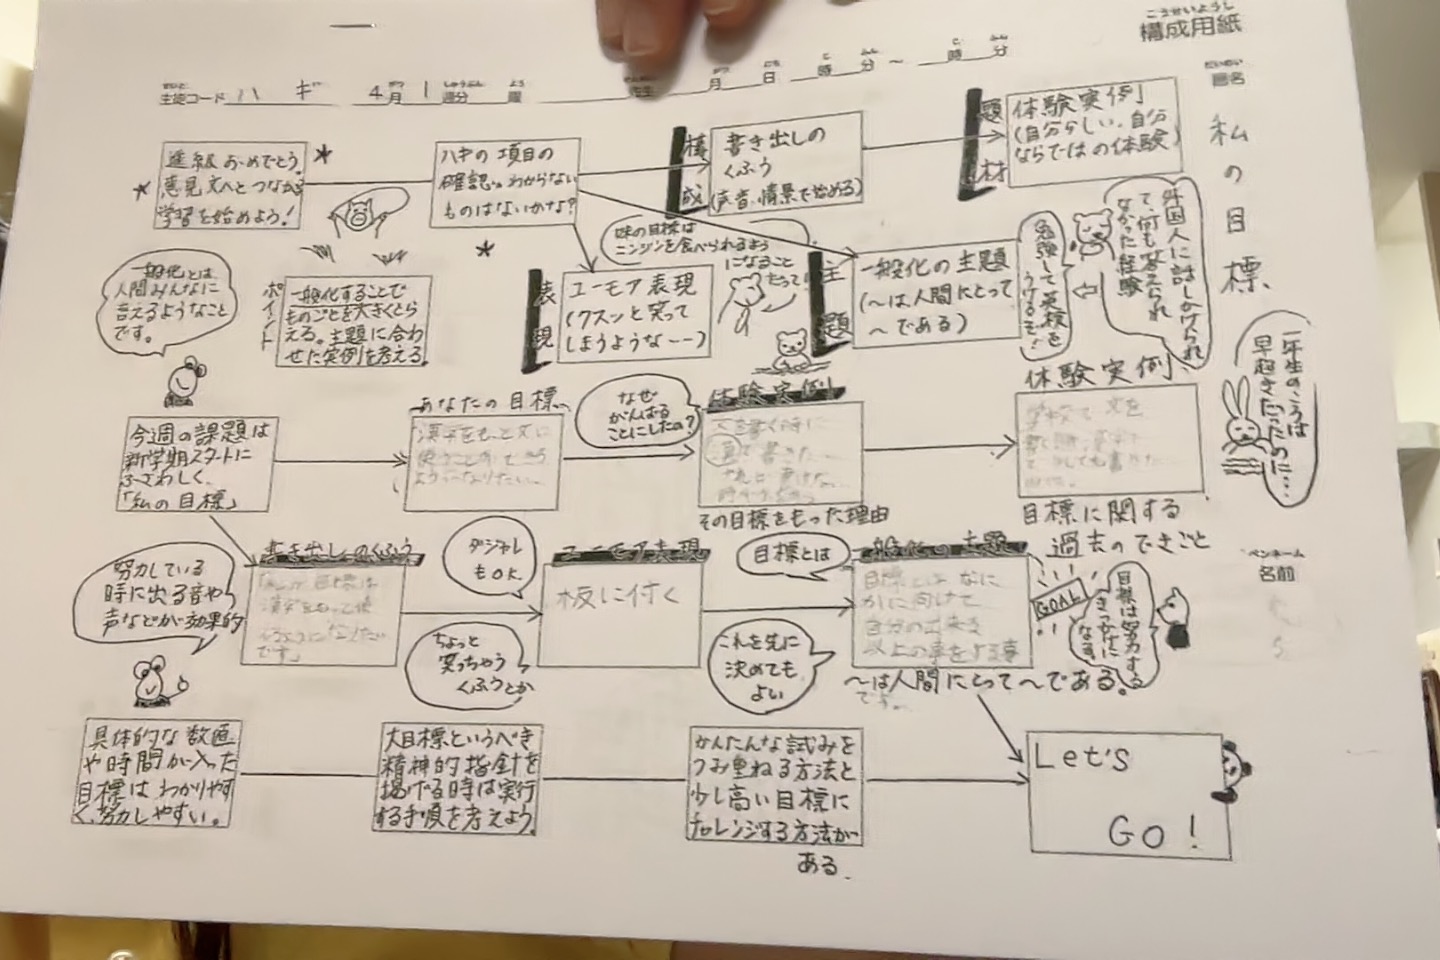 こうせいようし
構成用紙
だいめい
題名
私の目標
生徒コード ハギ 4月1週分 曜 先生 月 日 時 分 ~ 時 分
進級おめでとう。
意見文へとつながる
学習を始めよう!
ハギの項目の
確認。わからない
ものはないかな?
構成
書き出しの
くふう
(声、音、情景で始める)
題材
体験実例
(自分らしい、自分
ならではの体験)
一般化とは
人間みんなに
言えるようなこと
です。
ポイント
一般化することで
ものごとを大きくとら
える。主題に合わ
せた実例を考える。
妹の目標は
ニンジンを食べられるよう
になること
だって!
表現
ユーモア表現
(クスッと笑って
しまうような――)
主題
一般化の主題
(~は人間にとって
~である)
外国人に話しかけられ
て、何も答えられ
なかった経験
勉強して英検を
うけるぞ!
一年生のころは
早起きだったのに…
今週の課題は
新学期スタートに
ふさわしく、
「私の目標」
あなたの目標
漢字をもっと文に
使うことができる
ようになりたい。
なぜ
がんばる
ことにしたの?
体験実例
その目標をもった理由
体験実例
目標に関する
過去のできごと
努力している
時に出る音や
声などが効果的
書き出しのくふう
ダジャレ
もOK
ちょっと
笑っちゃう
くふうとか
ユーモア表現
板に付く
目標とは
これを先に
決めても
よい
一般化の主題
目標とはなに
かに向けて
自分の出来る
以上の事をする事
です。
~は人間にとって~である。
GOAL
目標は努力する
きっかけに
なる
ペンネーム
名前
具体的な数値
や時間が入った
目標はわかりやす
く、努力しやすい。
大目標というべき
精神的指針を
掲げる時は実行
する手順を考えよう。
かんたんな試みを
つみ重ねる方法と
少し高い目標に
チャレンジする方法が
ある。
Let's
GO!